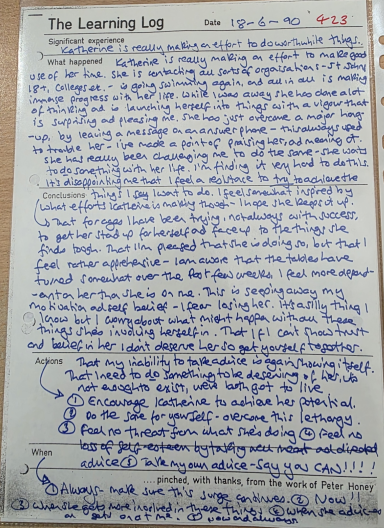 The Learning Log Date 18-6-90 423
Significant experience
Katherine is really making an effort to do worthwhile things.
What happened Katherine is really making an effort to make good
use of her time. She is contacting all sorts of organisations - St John
18+, Colleges etc. - is going swimming again and all in all is making
immense progress with her life. While I was away she has done a lot
of thinking and is launching herself into things with a vigour that
is surprising and pleasing me. She has just overcome a major hang
-up, by leaving a message on an answer phone - this always used
to trouble her - I've made a point of praising her, and meaning it.
She has really been challenging me to do the same - She wants
to do something with her life. I'm finding it very hard to do this.
It's disappointing me that I feel a resistance to try to achieve the
Conclusions things I say I want to do. I feel somewhat inspired by
what efforts Katherine is making though - I hope she keeps it up.
That for ages I have been trying, not always with success,
to get her to stand up for herself and face up to the things she
finds tough. That I'm pleased that she is doing so, but that I
feel rather apprehensive - I am aware that the tables have
turned somewhat over the past few weeks. I feel more depend-
-ant on her than she is on me. This is segoing away my
motivation and self belief - I fear losing her. It's a silly thing I
know but I worry about what might happen without these
things she's involving herself in. That if I can't show trust
and belief in her I don't deserve her so get yourself together.
Actions That my inability to take advice is again showing itself.
That I need to do something to be deserving of her, it's
not enough to exist, we've both got to live
① Encourage Katherine to achieve her potential.
② Do the same for yourself - overcome this lethargy.
③ Feel no threat from what she's doing ④ Feel no
loss of self-esteem by taking and directed
advice ⑤ Take my own advice - Say you CAN!!!!
When ....pinched, with thanks, from the work of Peter Honey
① Always - make sure this surge continues. ② Now!!
③ When she gets more involved in these things. ④ When she advises
or gets on at me ⑤